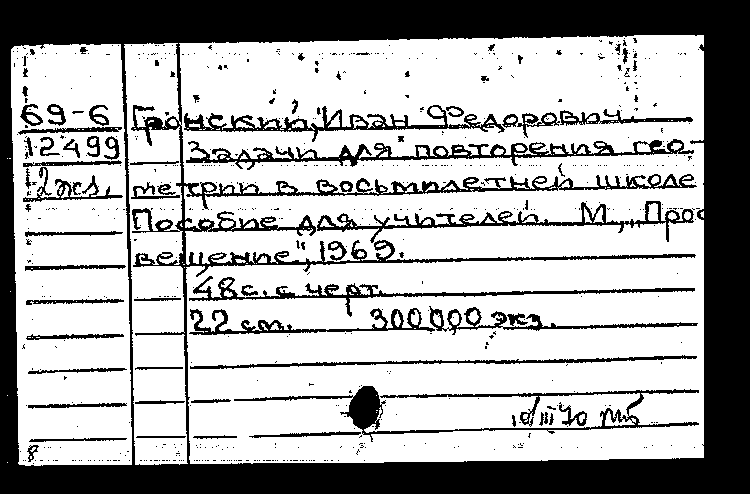 69-6 Гронский, Иван Федорович.
12499 Задачи для повторения гео-
2 экз. метрии в восьмилетней школе
Пособие для учителей. М., „Прос
вещение", 1969.
48 с. с черт.
22 см. 300000 экз.
10/III 70 мб
8